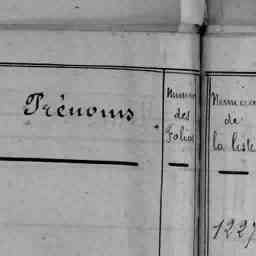 Prénoms
des
Folios
de
la liste
1227